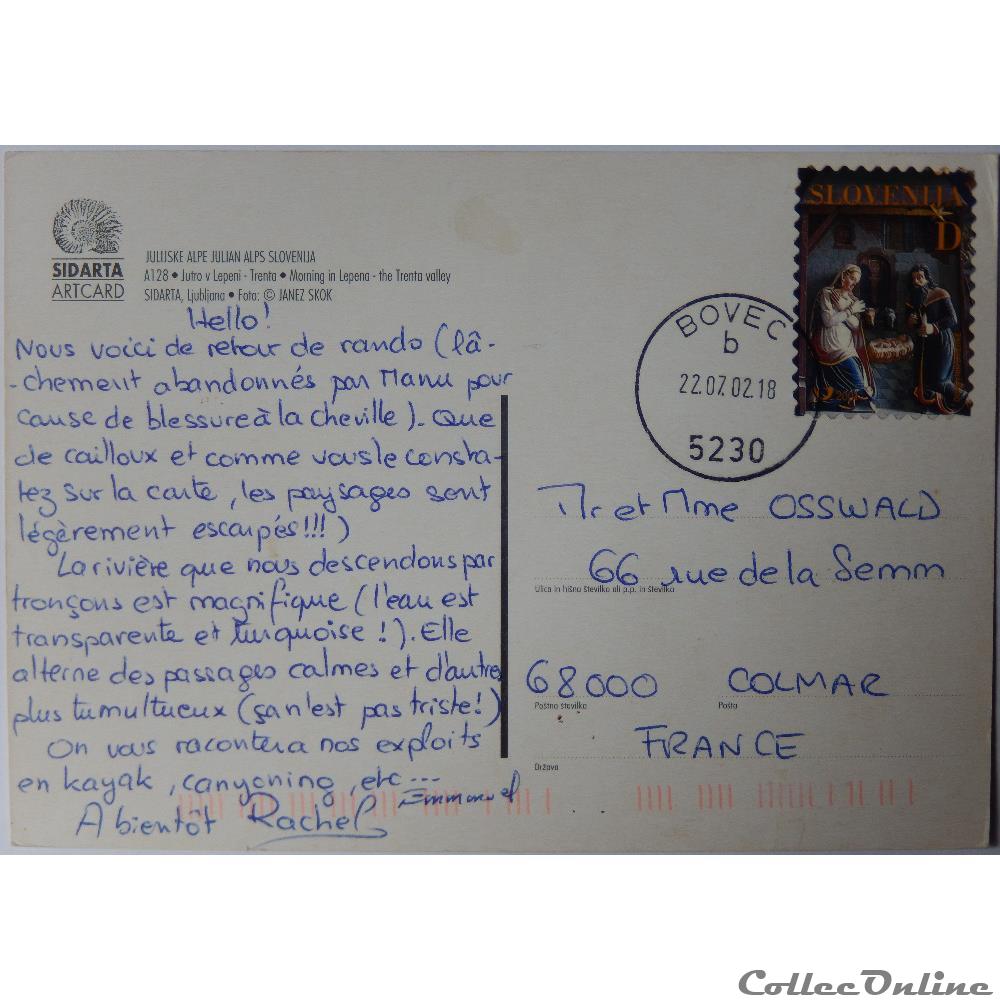 SLOVENIJA
D
SIDARTA
ARTCARD
JULIJSKE ALPE JULIAN ALPS SLOVENIJA
A128 • Jutro v Lepeni - Trenta • Morning in Lepena - the Trenta valley
SIDARTA, Ljubljana • Foto: © JANEZ SKOK
BOVEC
b
22.07.02.18
5230
Hello!
Nous voici de retour de rando (lâ-
-chement abandonnés par Manu pour
cause de blessure à la cheville). Que
de cailloux et comme vous le consta-
tez sur la carte, les paysages sont
légèrement escarpés!!!)
La rivière que nous descendons par
tronçons est magnifique (l'eau est
transparente et turquoise !). Elle
alterne des passages calmes et d'autres
plus tumultueux (ça n'est pas triste!)
On vous racontera nos exploits
en kayak, canyoning, etc...
A bientôt Rachel
Emmanuel
Mr et Mme OSSWALD
66 rue de la Semm
Ulica in hišna številka ali p.p. in številka
68000 COLMAR
Poštna številka Pošta
FRANCE
Država
CollecOnline